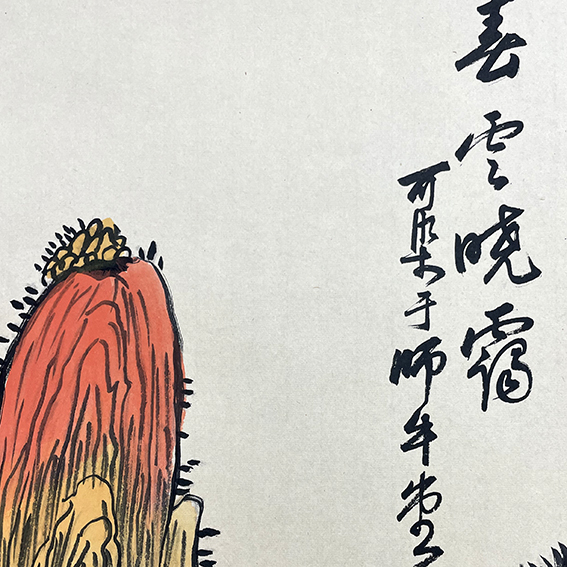 春雲晓霭
可染于师牛堂